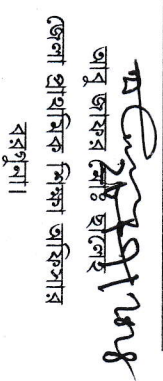 আবু জাফর মোঃ ছালেহ
জেলা প্রাথমিক শিক্ষা অফিসার
বরগুনা।